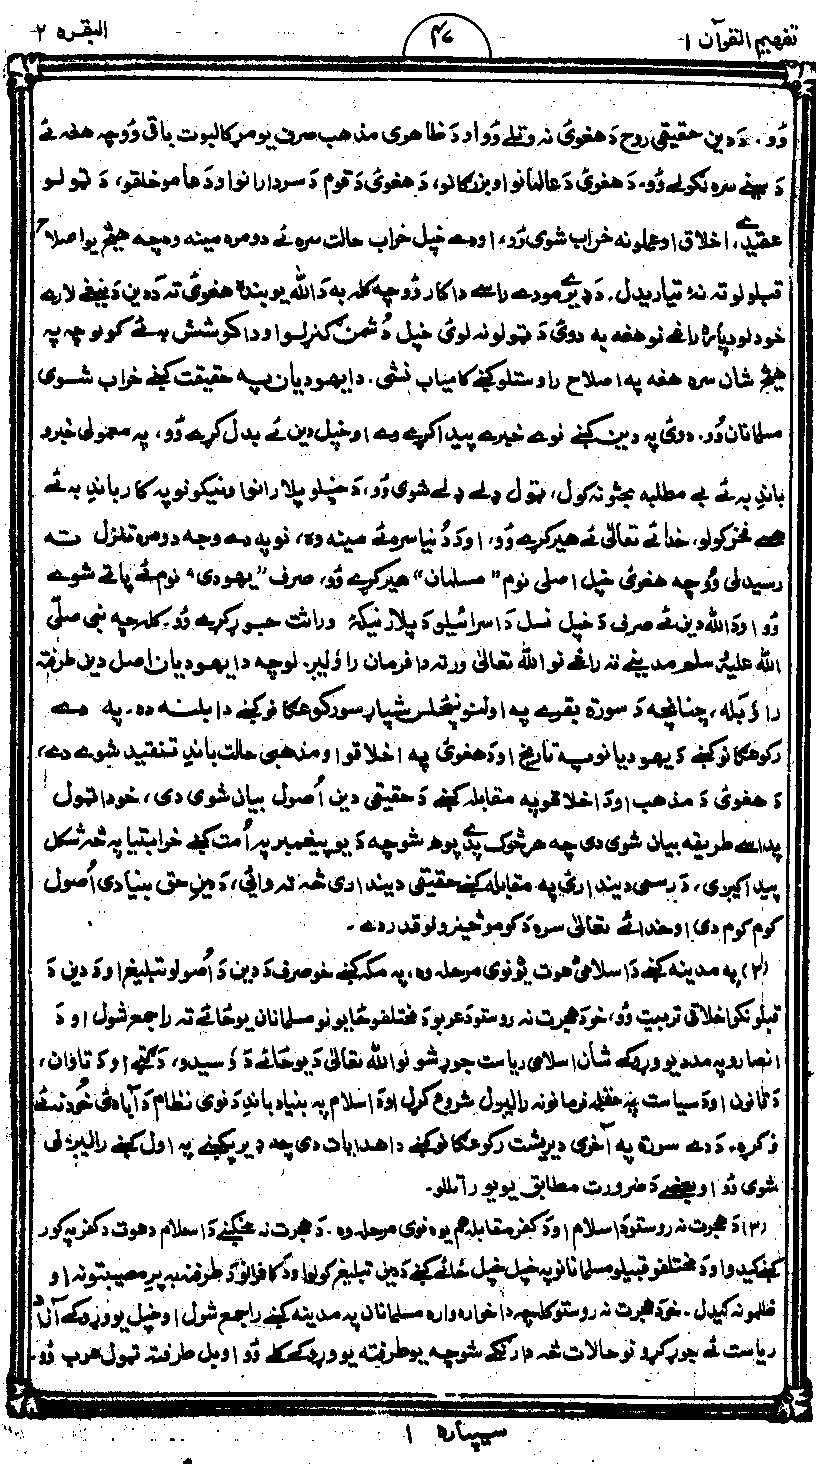 تفهيم القرآن ۱ ۴۷ البقره ۲
وُو. دَ دين حقيقي روح دَ هغوئ نه وتلے وُو او دَ ظاهرى مذهب صرف يو مړ کالبوت باقى وُو چه هغه ئے
دَ سينے سره نيولے وُو. دَ هغوئ دَ عالمانو او بزرګانو، دَ هغوئ دَ قوم دَ سردارانو او دَ عامو خلقو، دَ ټولو
عقيدے، اخلاق او عملونه خراب شوى وُو، او دے خپل خراب حالت سره ئے دومره مينه وه چه هيڅ يو اصلاح
قبلولو ته نۀ تياريدل. دَ ډيرے مودے راسے دا کار وُو چه کله به دَ الله يو بنده هغوئ ته دَ دين دَ نيغے لارے
خودلو دپاره راغے نو هغه به دوئ دَ ټولو نه لوئ خپل دُشمن ګنړلو او دا کوشش به ئے کولو چه په
هيڅ شان سره هغه په اصلاح راوستلو کښے کامياب نشى. دا يهوديان په حقيقت کښے خراب شوى
مسلمانان وُو. دوئ په دين کښے نوے خبرے پيدا کړے وے او خپل دين ئے بدل کړے وُو، په معمولى خبرو
باندِ به ئے بے مطلبه بحثونه کول، ټول ډلے ډلے شوى وُو، دَ خپلو پلارانو او نيکونو په کار باندِ به ئے
فخر کولو، خدائے تعالىٰ ئے هير کړے وُو، او دَ دُنيا سره ئے مينه وه، نو په دے وجه دومره تنزل ته
رسيدلى وُو چه هغوئ خپل اصلى نوم "مسلمان" هير کړے وُو، صرف "يهودى" نوم ئے پاتے شوے
وُو او دَ الله دين ئے صرف دَ خپل نسل دَ اسرائيلو دَ پلار نيکۀ وراثت جوړ کړے وُو. کله چه نبى صلّى
الله عليه وسلم مدينے ته راغے نو الله تعالىٰ ورته دا فرمان راؤليږلو چه دا يهوديان اصل دين طرفته
راؤبله، چنانچه دَ سورة بقرے په اولنو پنځلس شپاړسو رکوعګانو کښے دا بلنه ده. په دے
رکوعګانو کښے دَ يهوديانو په تاريخ او دَ هغوئ په اخلاقو او مذهبى حالت باندِ تنقيد شوے دے،
دَ هغوئ دَ مذهب او دَ اخلاقو په مقابله کښے دَ حقيقى دين اُصول بيان شوى دى، خو دا ټول
په داسے طريقه بيان شوى دى چه هر څوک پدے پوهه شو چه دَ يو پيغمبر په اُمت کښے خرابتيا په څه شکل
پيدا کيږى، دَ رسمى ديندارئ په مقابله کښے حقيقى دينداري څه ته وائى، دَ دينِ حق بنيادى اُصول
کوم کوم دى او خدائے تعالىٰ سره دَ کومو څيزونو قدر دے.
(۲) په مدينه کښے دَ اسلامى دعوت يو نوى مرحله وه، په مکه کښے خو صرف دَ دين دَ اُصولو تبليغ او دَ دين دَ
قبلونکو اخلاقى تربيت وُو، خو دَ هجرت نه روستو دَ عربو دَ مختلفو ځايونو مسلمانان يو ځائے ته راجمع شول او دَ
انصارو په مدد يو وړوکے شان اسلامى رياست جوړ شو نو الله تعالىٰ دَ يو ځائے دَ وسيدو، دَ ګټے او دَ تاوان،
دَ قانون او دَ سياست په حقله فرمانونه راليږل شروع کړل او دَ اسلام په بنياد باندِ دَ نوى نظام دَ آبادئ خودنه ئے
وُکړه. دَ دے سورة په آخرى درويشت رکوعګانو کښے دا هدايات دى چه ډير پکښے په اول کښے راليږلى
شوى وُو او بعضے دَ ضرورت مطابق يو يو راتللو.
(۳) دَ هجرت نه روستو دَ اسلام او دَ کفر مقابله هم يوه نوى مرحله وه. دَ هجرت نه مخکښے دَ اسلام دعوت دَ کفر په کور
کښے کيدو او دَ مختلفو قبيلو مسلمانانو په خپل خپل ځائے کښے دَ دين تبليغ کولو او دَ کافرانو دَ طرفنه به پرے مصيبتونه او
ظلمونه کيدل. خو دَ هجرت نه روستو کله چه دا خواره واره مسلمانان په مدينه کښے راجمع شول او خپل يو وړوکے آزاد
رياست ئے جوړ کړو نو حالات څه داړنګے شو چه يو طرفته يو وړوکے کلے وُو او بل طرفته ټول عرب وُو.
سيپاره ۱